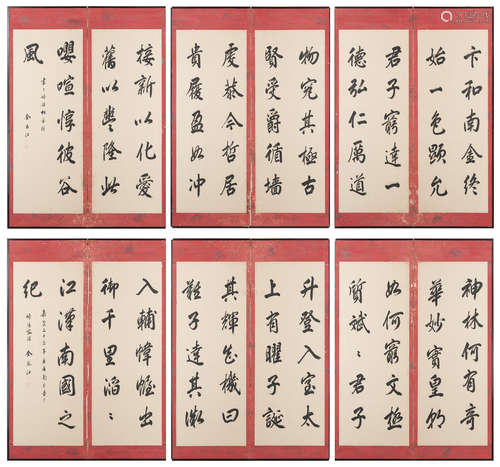 卞和南金終
始一色顯允
君子窮達一
德弘仁厲道
物究其極古
賢受爵循墻
虔恭今哲居
貴履盈如沖
接新以化愛
舊以豐隆此
嚶喧惇彼谷
風
神林何有奇
華妙實皇朝
如何窮文極
質斌々君子
升登入室太
上有曜子誕
其輝知機曰
難子達其微
入輔幃幄出
御千里滔々
江漢南國之
紀